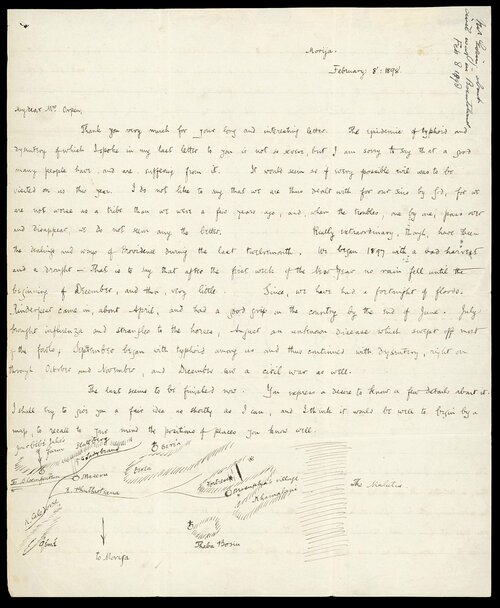 Morija.
February: 8': 1898.
My dear Mrs Orpen,
Thank you very much for your long and interesting letter. The epidemic of typhoid and
dysentery of which I spoke in my last letter to you is not so severe, but I am sorry to say that a good
many people have, and are, suffering from it. It would seem as if every possible evil was to be
visited on us this year. I do not like to say that we are thus dealt with for our sins by God, for we
are not worse as a tribe than we were a few years ago, and, when the troubles, one by one, pass over
and disappear, we do not seem any the better. Really extraordinary, though, have been
the dealings and ways of Providence during the last twelvemonth. We began 1897 with a bad harvest
and a drought — That is to say that after the first week of the New Year no rain fell until the
beginning of December, and then, very little. Since, we have had a fortnight of floods.
Rinderpest came in, about April, and had a good grip on the country by the end of June. July
brought influenza and strangles to the horses, August an unknown disease which swept off most
of the fowls; September began with typhoid among us and thus continued with dysentery, right on
through October and November, and December saw a civil war as well.
The last seems to be finished now. You express a desire to know a few details about it.
I shall try to give you a fair idea as shortly as I can, and I think it would be well to begin by a
map, to recall to your mind the positions of places you know well.
Farm
Ladybrand
Berea
Maseru
Berea
R. Phuthiatsana
village
Khamolapi
The Malutis
R. Caledon
Thaba Bosiu
to Morija
Feb 8 1898